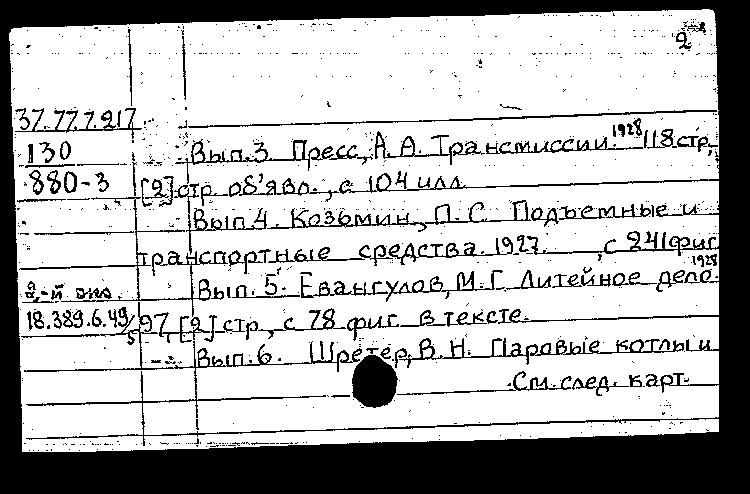 2
37.77.7.217
130 Вып.3. Пресс, А. А. Трансмиссии. 1928 118 стр.,
880-3 [2] стр. об'явл., с 104 илл
Вып.4. Козьмин, П. С. Подъемные и
транспортные средства. 1927. , с 241 фиг
2-й экз. Вып. 5. Евангулов, М. Г. Литейное дело. 1928
18.389.6.49/5 97, [2] стр, с 78 фиг. в тексте.
Вып. 6. Шретер, В. Н. Паровые котлы и
См. след. карт.